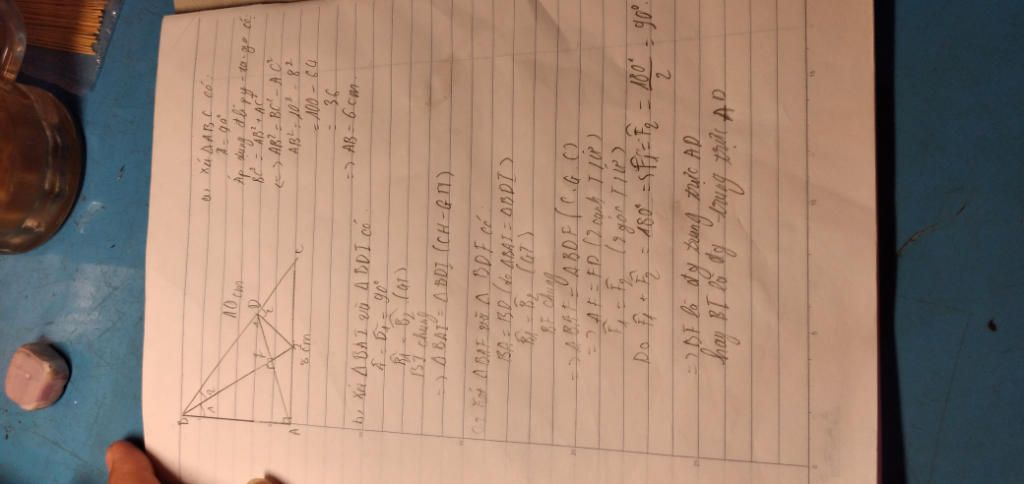 a, Xét ΔABC có:
Â = 90°
Áp dụng đlý py-ta-go có:
BC² = AB² + AC²
<=> AB² = BC² - AC²
AB² = 10² - 8²
= 100 - 64
= 36
=> AB = 6cm
B
1 2
10cm
D
F
A
I
8cm
C
b, Xét ΔBAI và ΔBDI có:
Â = D̂₁ = 90°
B̂₁ = B̂₂ (GT)
BI chung
=> ΔBAI = ΔBDI (CH-GN)
c, Xét ΔBAF và ΔBDF có
BA = BD (do ΔBAI = ΔBDI)
B̂₁ = B̂₂ (GT)
BF chung
=> ΔBAF = ΔBDF (C.G.C)
=> AF = FD (2 cạnh TƯ)
F̂₁ = F̂₂ (2 góc TƯ)
Do F̂₁ + F̂₂ = 180° => F̂₁ = F̂₂ = 180°/2 = 90°
=> BF là đg trung trực AD
hay BI là đg trung trực AD